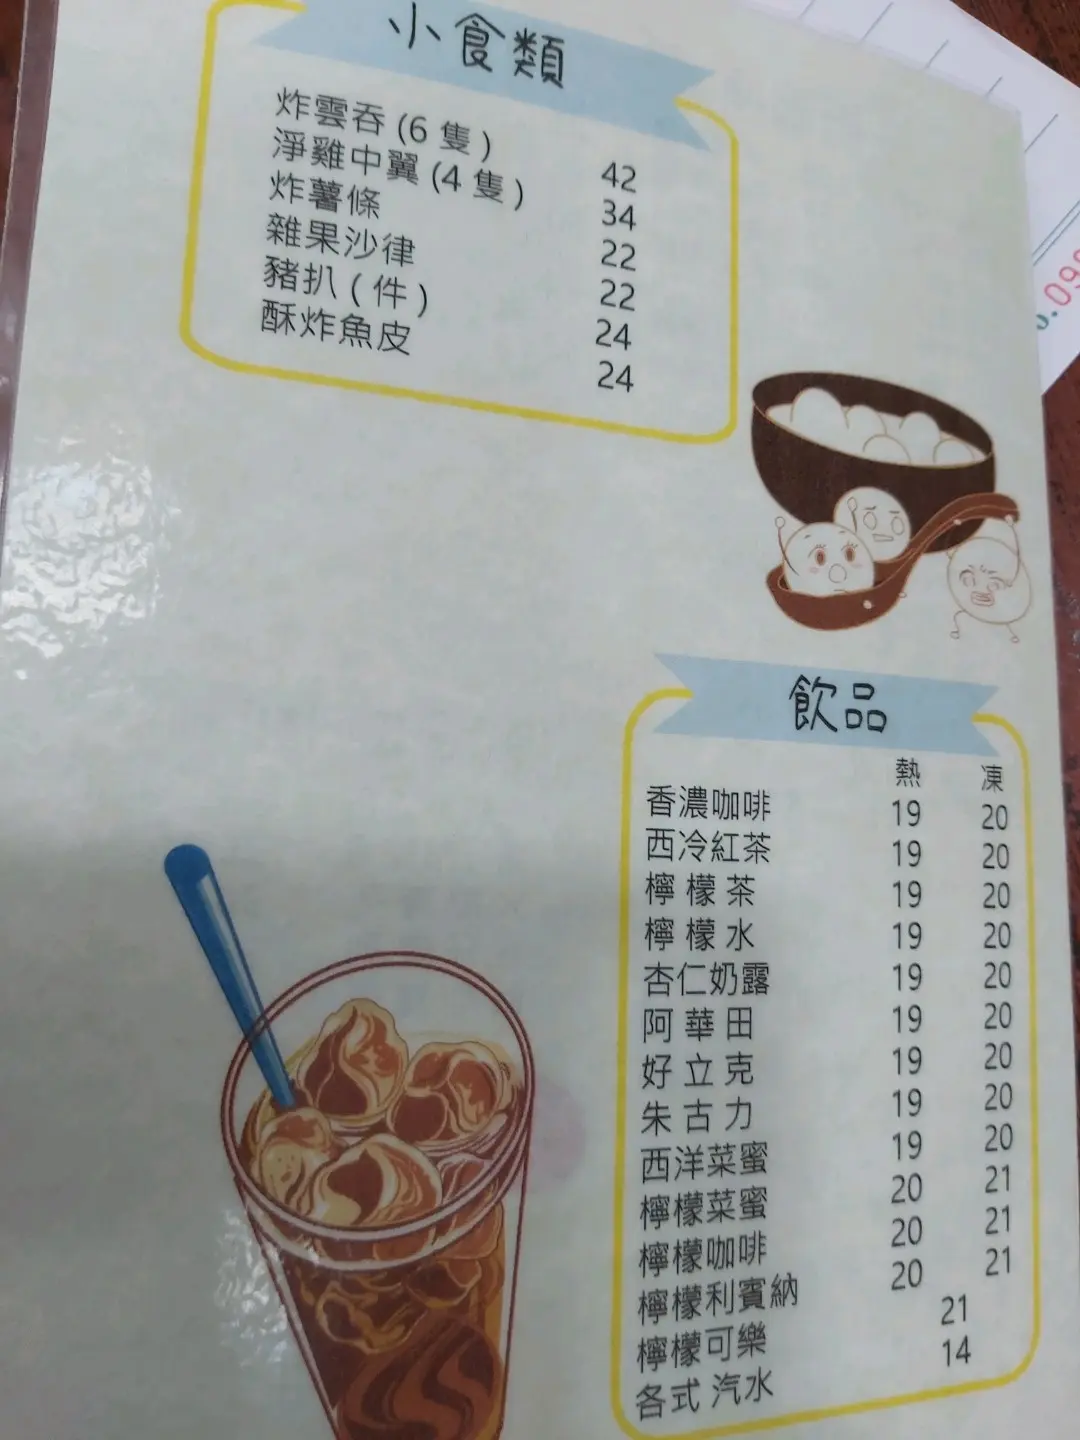 小食類
炸雲吞 (6 隻) 42
淨雞中翼 (4 隻) 34
炸薯條 22
雜果沙律 22
豬扒 (件) 24
酥炸魚皮 24
飲品
熱 凍
香濃咖啡 19 20
西冷紅茶 19 20
檸檬茶 19 20
檸檬水 19 20
杏仁奶露 19 20
阿華田 19 20
好立克 19 20
朱古力 19 20
西洋菜蜜 19 20
檸檬菜蜜 20 21
檸檬咖啡 20 21
檸檬利賓納 20 21
檸檬可樂 21
各式 汽水 14